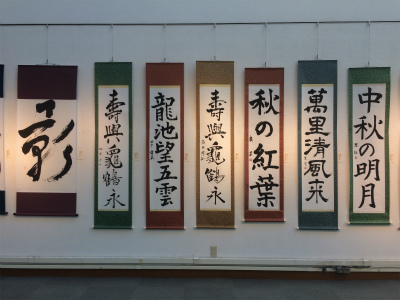 彩
壽興龜鶴永
龍池望五雲
壽興龜鶴永
秋の紅葉
萬里清風来
中秋の明月